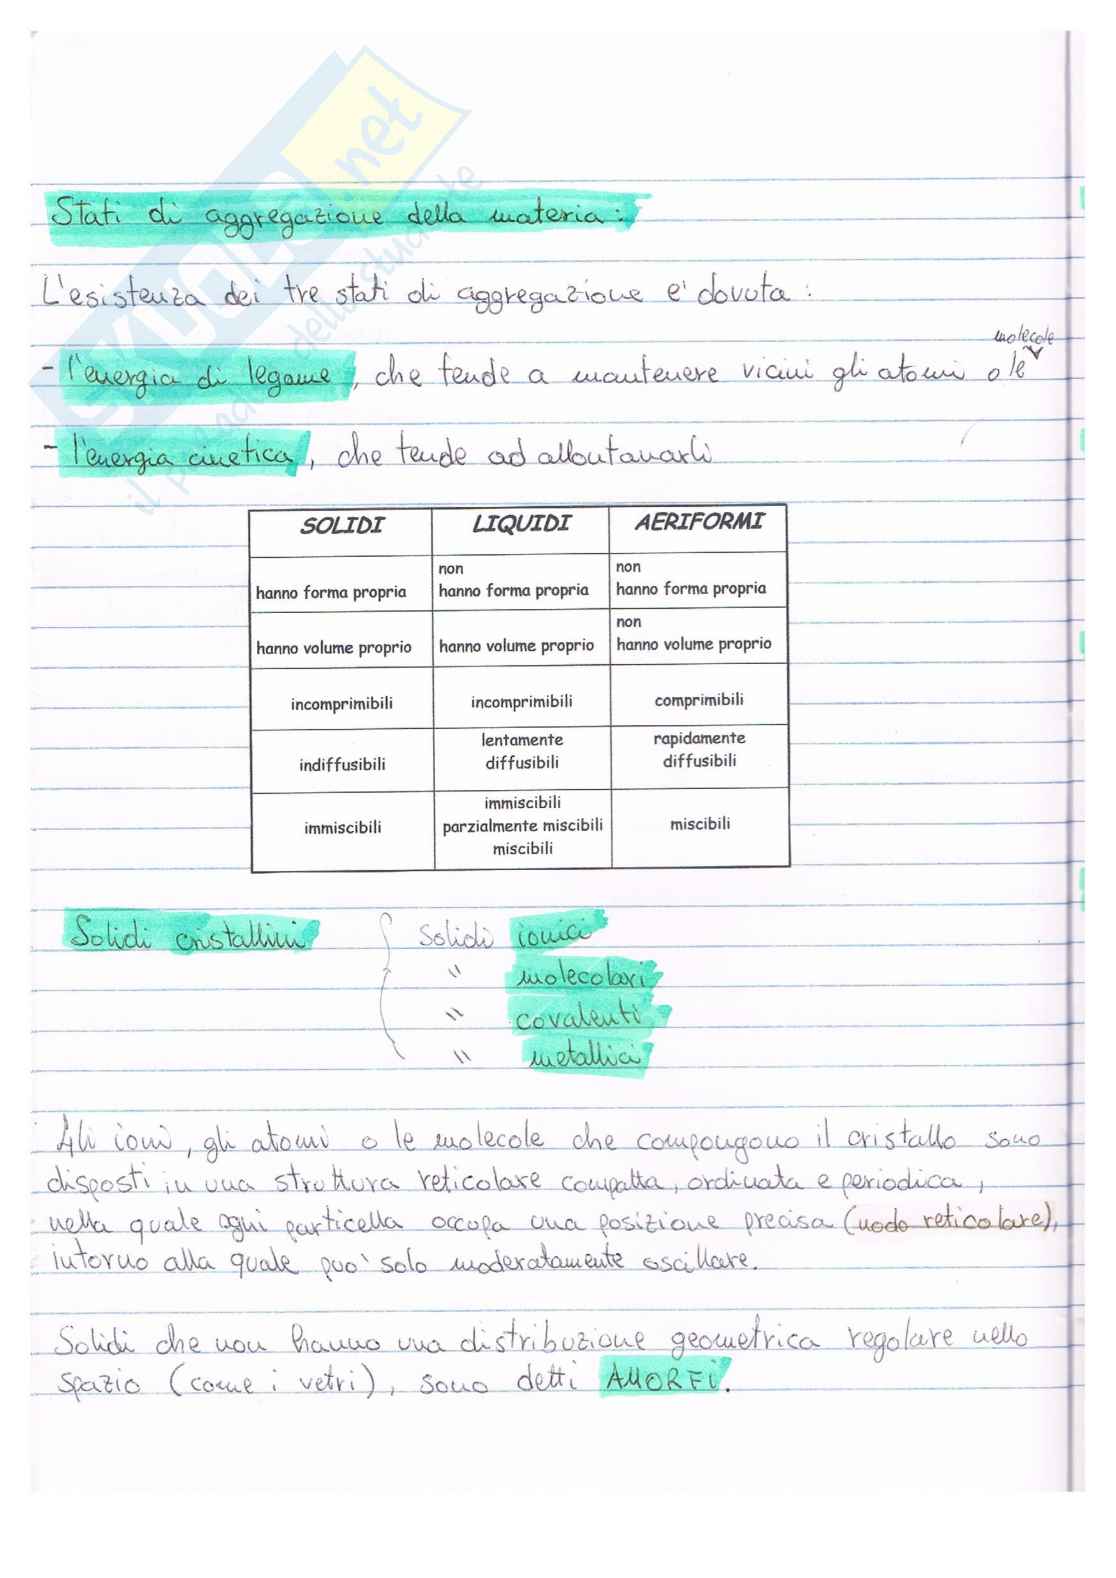 Stati di aggregazione della materia:
L'esistenza dei tre stati di aggregazione e' dovuta:
molecole
- l'energia di legame, che tende a mantenere vicini gli atomi o le
- l'energia cinetica, che tende ad allontanarli
SOLIDI LIQUIDI AERIFORMI
non non
hanno forma propria hanno forma propria hanno forma propria
non
hanno volume proprio hanno volume proprio hanno volume proprio
incomprimibili incomprimibili comprimibili
lentamente rapidamente
indiffusibili diffusibili diffusibili
immiscibili
immiscibili parzialmente miscibili miscibili
miscibili
Solidi cristallini Solidi ionici
" molecolari
" covalenti
" metallici
Gli ioni, gli atomi o le molecole che compongono il cristallo sono
disposti in una struttura reticolare compatta, ordinata e periodica,
nella quale ogni particella occupa una posizione precisa (nodo reticolare),
intorno alla quale puo' solo moderatamente oscillare.
Solidi che non hanno una distribuzione geometrica regolare nello
spazio (come i vetri), sono detti AMORFi.
SKUOLA.net